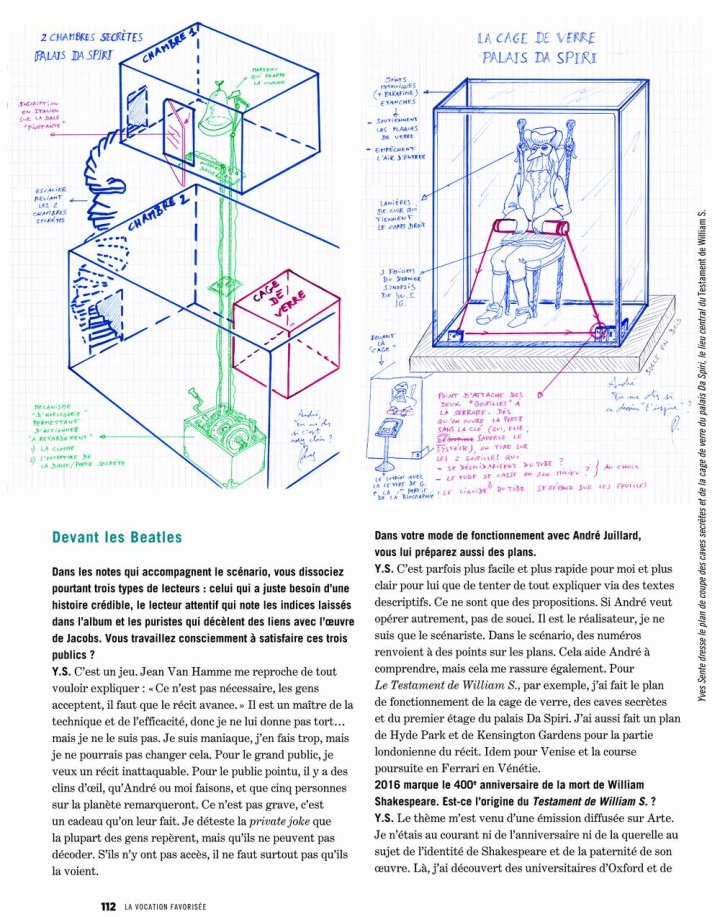 2 CHAMBRES SECRÈTES
PALAIS DA SPIRI
CHAMBRE 1
MARTEAU
QUI FRAPPE
LA CLOCHE
INSCRIPTION
EN ITALIEN
SUR LA DALLE
"PIVOTANTE"
ESCALIER
RELIANT
LES 2
CHAMBRES
SECRÈTES
CHAMBRE 2
CAGE
DE
VERRE
MÉCANISME
"D'HORLOGERIE"
PERMETTANT
D'ACTIONNER
"A RETARDEMENT"
1) LA CLOCHE
2) L'OUVERTURE DE
LA DALLE/PORTE SECRÈTE
André,
LA CAGE DE VERRE
PALAIS DA SPIRI
JOINTS
(+ PARAFINE)
ETANCHES
- SOUTIENNENT
LES PLAQUES
DE VERRE
- EMPÊCHENT
L'AIR D'ENTRER
LANIÈRES
DE CUIR QUI
TIENNENT
LE CORPS DROIT
3 FEUILLETS
DU DERNIER
SYNOPSIS
DE W. S.
DEVANT
LA
"CAGE"
SOCLE EN BOIS
André
POINT D'ATTACHE DES
DEUX "GOUPILLES" A
LA SERRURE. DÈS
QU'ON OUVRE LA PORTE
SANS LA CLÉ (QUI, ELLE,
LE
SYSTÈME), ON TIRE SUR
LES 2 GOUPILLES QUI
- SE DÉSOLIDARISENT DU TUBE ?
- LE TUBE SE CASSE EN SON MILIEU ? } AU CHOIX
! LE LIQUIDE DU TUBE SE RÉPAND SUR LES FEUILLES
LE LUTRIN AVEC
LA LETTRE DE G.
+ LA 1re PARTIE
DE LA BIOGRAPHIE
Yves Sente dresse le plan de coupe des caves secrètes et de la cage de verre du palais Da Spiri, le lieu central du Testament de William S.
Devant les Beatles
Dans les notes qui accompagnent le scénario, vous dissociez
pourtant trois types de lecteurs : celui qui a juste besoin d'une
histoire crédible, le lecteur attentif qui note les indices laissés
dans l'album et les puristes qui décèlent des liens avec l'œuvre
de Jacobs. Vous travaillez consciemment à satisfaire ces trois
publics ?
Y.S. C'est un jeu. Jean Van Hamme me reproche de tout
vouloir expliquer : « Ce n'est pas nécessaire, les gens
acceptent, il faut que le récit avance. » Il est un maître de la
technique et de l'efficacité, donc je ne lui donne pas tort…
mais je ne le suis pas. Je suis maniaque, j'en fais trop, mais
je ne pourrais pas changer cela. Pour le grand public, je
veux un récit inattaquable. Pour le public pointu, il y a des
clins d'œil, qu'André ou moi faisons, et que cinq personnes
sur la planète remarqueront. Ce n'est pas grave, c'est
un cadeau qu'on leur fait. Je déteste la private joke que
la plupart des gens repèrent, mais qu'ils ne peuvent pas
décoder. S'ils n'y ont pas accès, il ne faut surtout pas qu'ils
la voient.
Dans votre mode de fonctionnement avec André Juillard,
vous lui préparez aussi des plans.
Y.S. C'est parfois plus facile et plus rapide pour moi et plus
clair pour lui que de tenter de tout expliquer via des textes
descriptifs. Ce ne sont que des propositions. Si André veut
opérer autrement, pas de souci. Il est le réalisateur, je ne
suis que le scénariste. Dans le scénario, des numéros
renvoient à des points sur les plans. Cela aide André à
comprendre, mais cela me rassure également. Pour
Le Testament de William S., par exemple, j'ai fait le plan
de fonctionnement de la cage de verre, des caves secrètes
et du premier étage du palais Da Spiri. J'ai aussi fait un plan
de Hyde Park et de Kensington Gardens pour la partie
londonienne du récit. Idem pour Venise et la course
poursuite en Ferrari en Vénétie.
2016 marque le 400e anniversaire de la mort de William
Shakespeare. Est-ce l'origine du Testament de William S. ?
Y.S. Le thème m'est venu d'une émission diffusée sur Arte.
Je n'étais au courant ni de l'anniversaire ni de la querelle au
sujet de l'identité de Shakespeare et de la paternité de son
œuvre. Là, j'ai découvert des universitaires d'Oxford et de
112 LA VOCATION FAVORISÉE